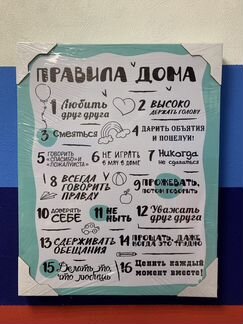 ПРАВИЛА ДОМА
1 Любить друг друга
2 ВЫСОКО ДЕРЖАТЬ ГОЛОВУ
3 Смеяться
4 ДАРИТЬ ОБЪЯТИЯ И ПОЦЕЛУИ!
5 ГОВОРИТЬ «СПАСИБО» И «ПОЖАЛУЙСТА»
6 НЕ ИГРАТЬ В МЯЧ В ДОМЕ
7 Никогда не сдаваться
8 ВСЕГДА ГОВОРИТЬ ПРАВДУ
9 ПРОЖЕВАТЬ, ПОТОМ ГОВОРИТЬ
10 ДОВЕРЯТЬ СЕБЕ
11 НЕ НЫТЬ
12 Уважать друг друга
13 СДЕРЖИВАТЬ ОБЕЩАНИЯ
14 ПРОЩАТЬ, ДАЖЕ КОГДА ЭТО ТРУДНО
15 Делать то, что любишь
16 Ценить каждый момент вместе!